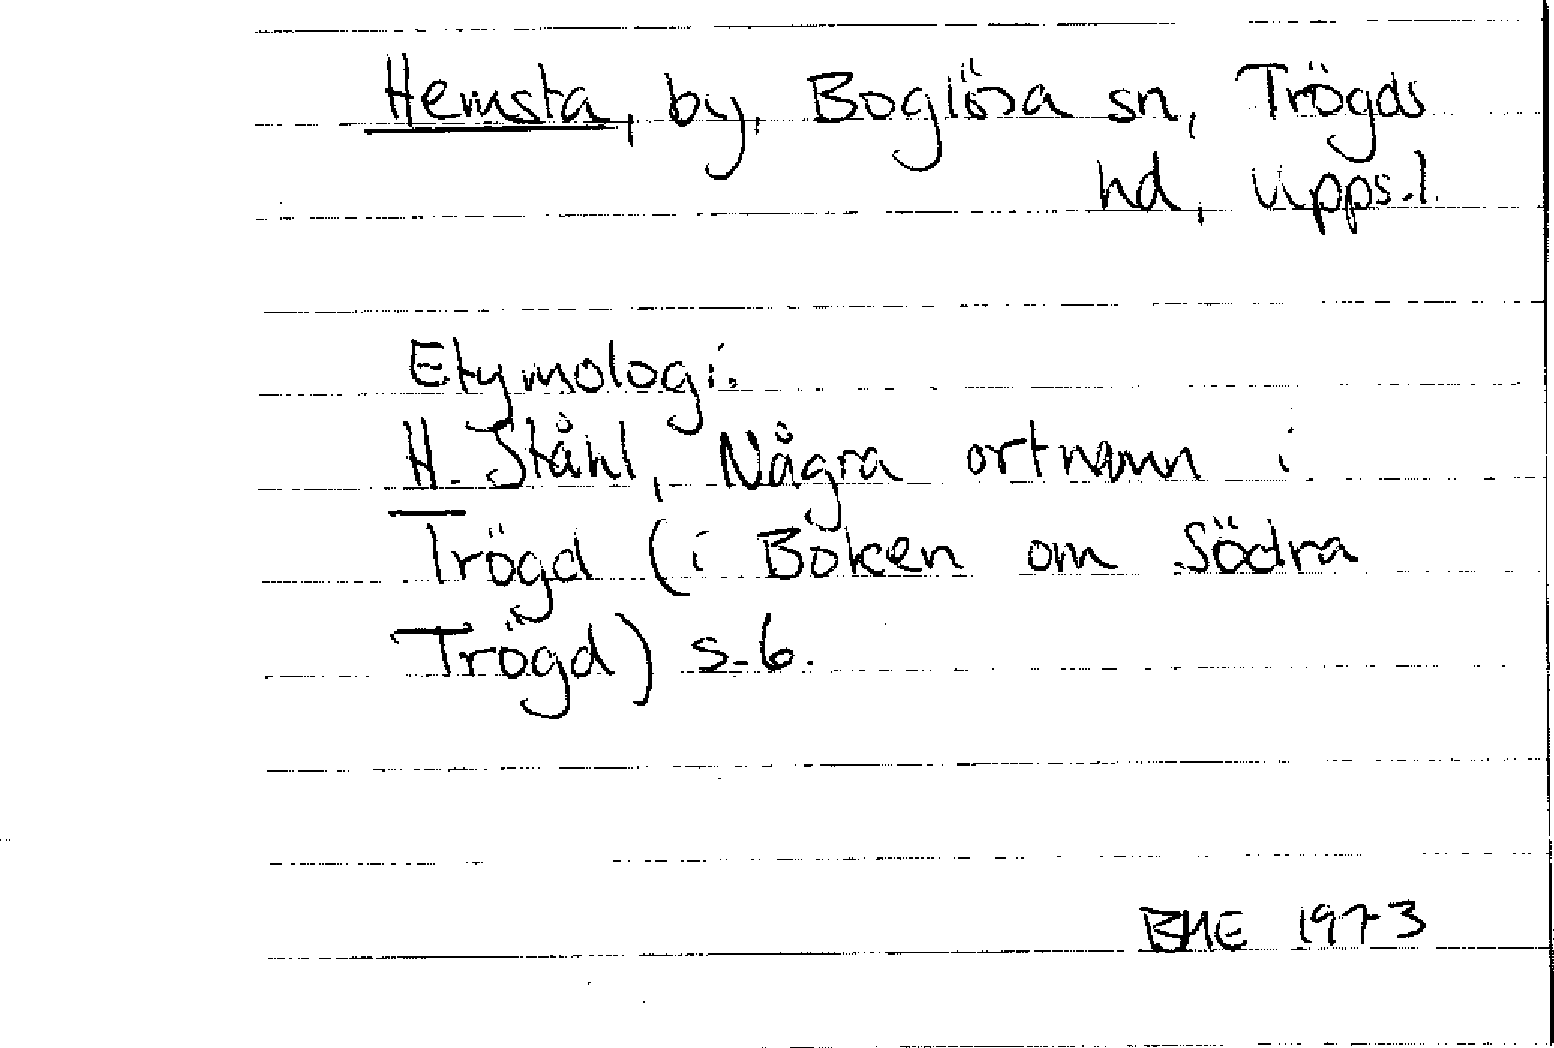 Hemsta, by, Boglösa sn, Trögds
hd, Upps.l.
Etymologi.
H. Ståhl, Några ortnamn i
Trögd (i Boken om Södra
Trögd) s. 6.
1973